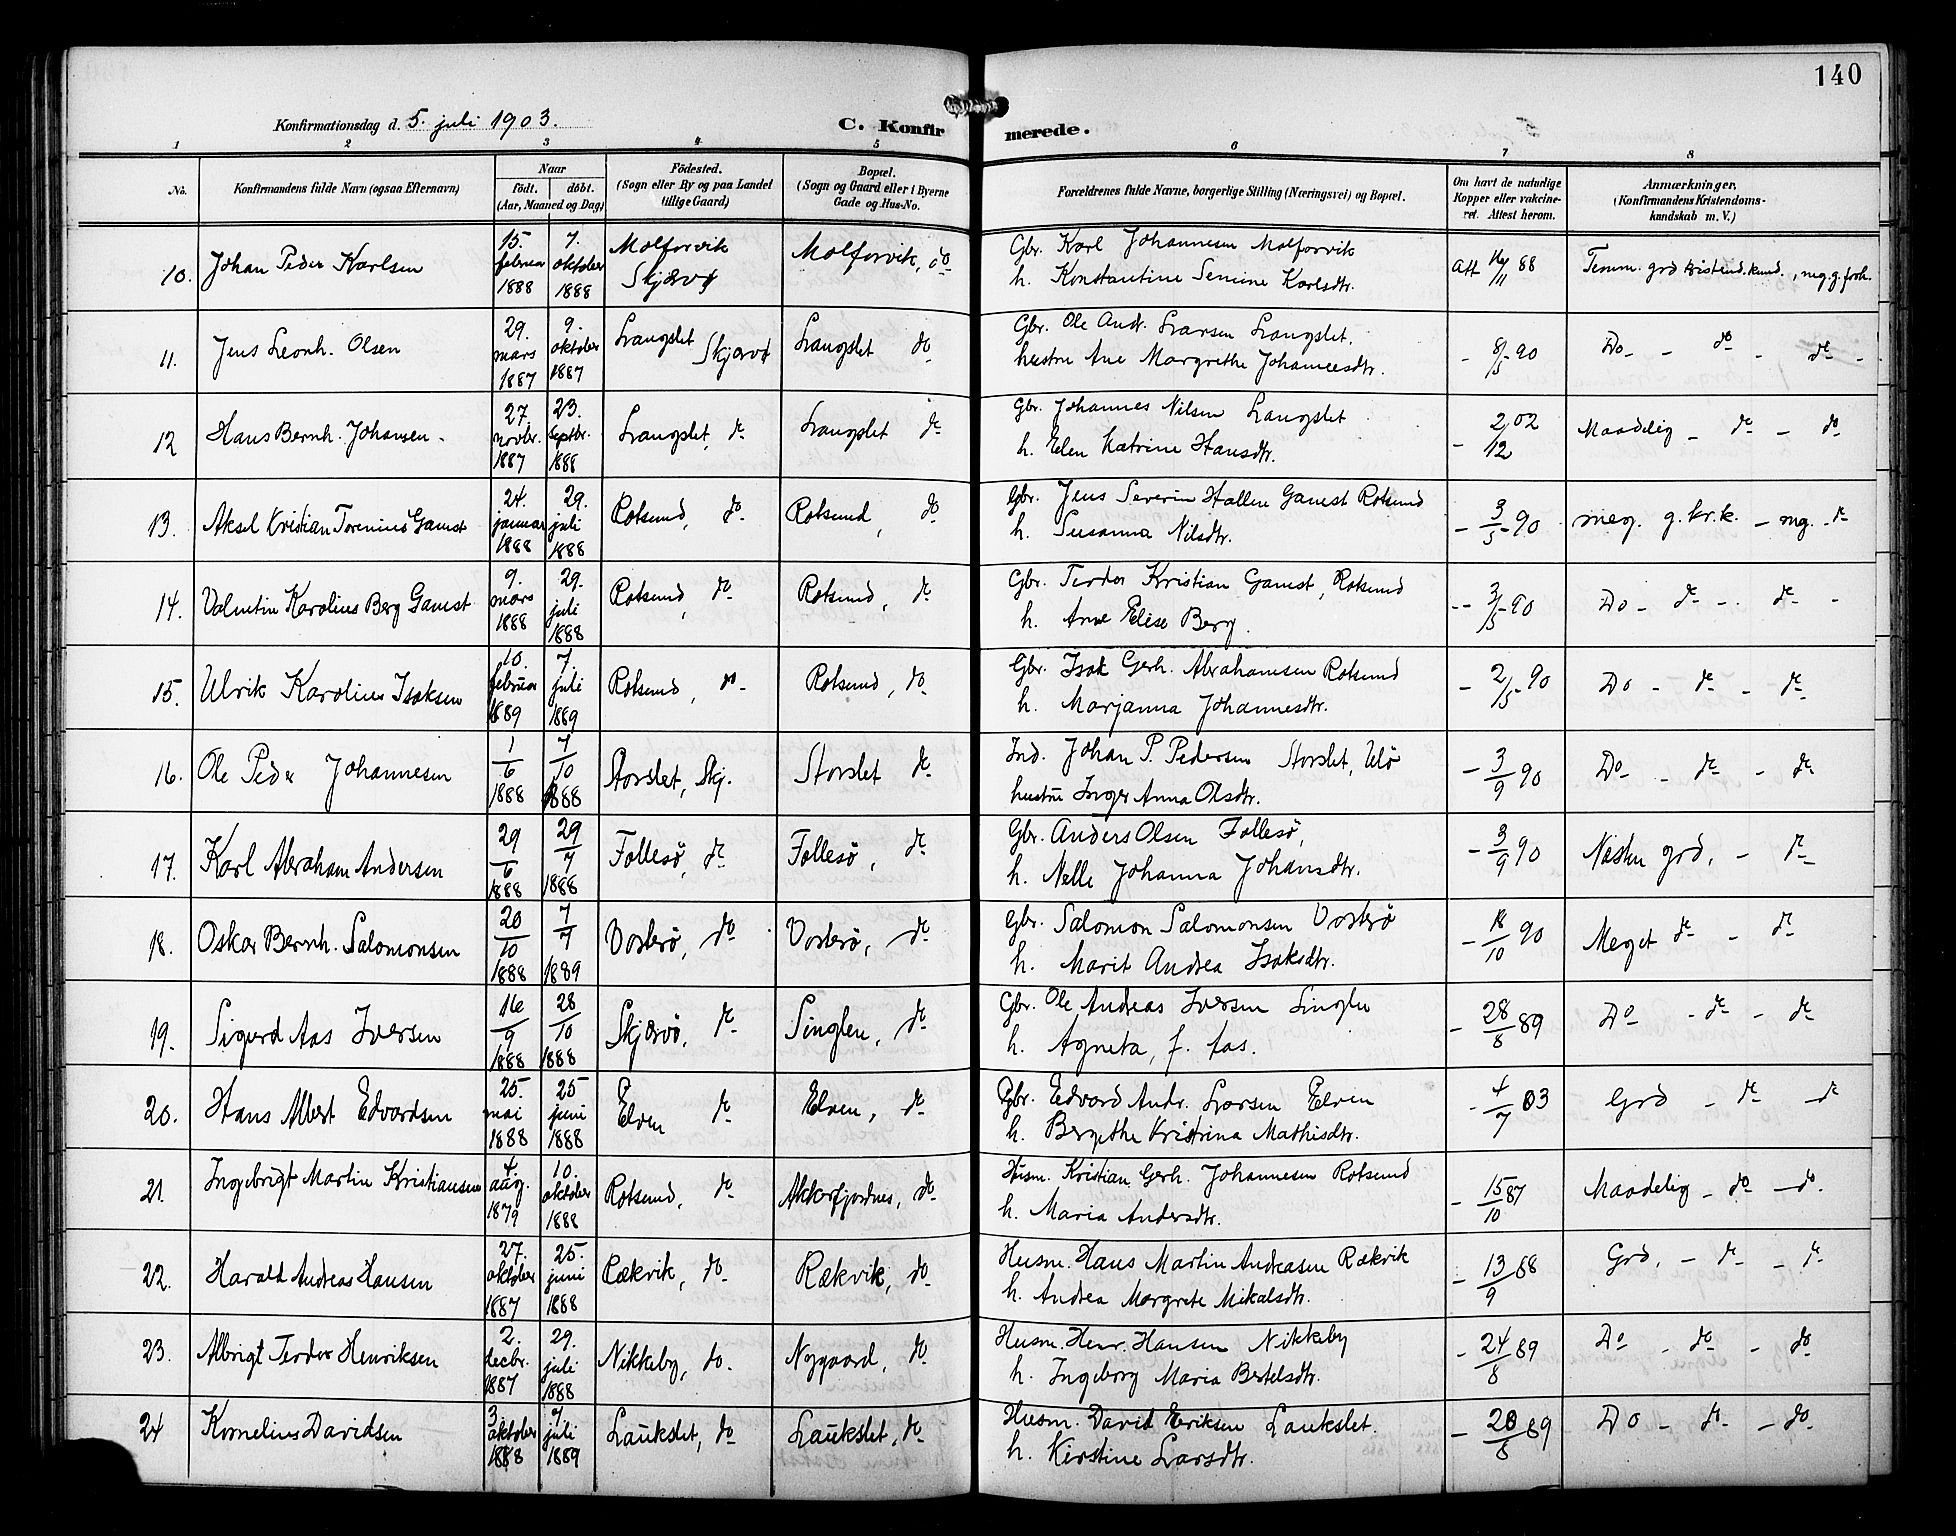 140
Konfirmationsdag d. 5. juli 1903.
C. Konfirmerede.
1 2 3 4 5 6 7 8
No. | Konfirmandens fulde Navn (ogsaa Efternavn) | Naar födt. döbt. (Aar, Maaned og Dag) | Födested. (Sogn eller By og paa Landet tillige Gaard) | Bopæl. (Sogn og Gaard eller i Byerne Gade og Hus-No. | Forældrenes fulde Navne, borgerlige Stilling (Næringsvei) og Bopæl. | Om havt de naturlige Kopper eller vakcineret. Attest herom. | Anmærkninger. (Konfirmandens Kristendomskundskab m. V.)
10. Johan Peder Karlsen | 15. februar 1888 | 7. oktober 1888 | Molforvik Skjærvø | Molforvik, do | Gbr. Karl Johannesen Molforvik
h. Konstantine Semine Karlsdtr. | Att 16/11 88 | Temm. grd kristend. kund., meg. g. forh.
11. Jens Leonh. Olsen | 29. mars 1887 | 9. oktober 1887 | Langslet Skjærvø | Langslet do | Gbr. Ole Andr. Larsen Langslet.
hustru Ane Margrethe Johannesdtr. | - 8/5-90 | Do - do - do -
12 Hans Bernh. Johansen - | 27. novbr. 1887 | 23. septbr. 1888 | Langslet, do | Langslet do | Gbr. Johannes Nilsen Langslet
h. Elen Katrine Hansdtr. | - 2/12 02 | Maadelig - do - do
13. Aksel Kristian Torenius Gamst | 24. januar 1888 | 29. juli 1888 | Rotsund, do | Rotsund, do | Gbr. Jens Severin Hallen Gamst Rotsund
h. Susanna Nilsdtr. | - 3/5-90 | meg. g. kr.k. - mg. - do
14. Valentin Karolius Berg Gamst | 9. mars 1888 | 29. juli 1888 | Rotsund, do | Rotsund, do | Gbr. Terder Kristian Gamst, Rotsund
h. Ane Elise Berg. | -- 3/5-90 | Do - do -. do -
15. Ulrik Karolius Isaksen | 10. februar 1889 | 7. juli 1889 | Rotsund, do - | Rotsund, do | Gbr. Isak Gerh. Abrahamsen Rotsund
h. Marjanna Johannesdtr. | - 2/5-90 | Do - do - do
16. Ole Peder Johannesen | 1/6 1888 | 7/10 1888 | Storslet, Skj. | Storslet do | Ind. Johan P. Pedersen Storslet, Ulø
hustru Inger Anna Olsdtr. | - 3/9 90 | Do - do - do
17. Karl Abraham Andersen | 29/6 1888 | 29/7 1888 | Follesö, do | Follesö, do | Gbr. Anders Olsen Follesö,
h. Nelle Johanna Johansdtr. | - 3/9 90 | Næsten grd. - do
18. Oskar Bernh. Salomonsen | 20/10 1888 | 7/7 1889 | Vorterö, do | Vorterö, do | Gbr. Salomon Salomonsen Vorterö
h. Marit Andrea Isaksdtr. | - 18/10 90 | Meget do - do
19. Sigurd Aas Iversen | 16/9 1888 | 28/10 1888 | Skjærvö, do | Singlen, do | Gbr. Ole Andreas Iversen Singlen
h. Agneta, f. Aas. | - 28/8 89 | Do - do - do
20. Hans Albert Edvardsen | 25. mai 1888 | 25 juni 1888 | Elven do | Elven, do | Gbr. Edvard Andr. Larsen Elven
h. Bergethe Kristina Mathisdtr. | - 4/7 03 | Grd - do - do
21. Ingebrigt Martin Kristiansen | 4. aug. 1879 | 10. oktober 1888 | Rotsund, do | Akkarfjordnes, do | Husm. Kristian Gerh. Johannesen Rotsund
h. Maria Andersdtr. | - 15/10 87 | Maadelig - do - do.
22. Harald Andreas Hansen | 27. oktober 1887 | 25. juni 1888 | Rækvik, do - | Rækvik, do | Husm. Hans Martin Andreasen Rækvik
h. Andrea Margrete Mikalsdtr. | - 13/9 88 | Grd. - do - do
23. Albrigt Terder Henriksen | 2. decbr. 1887 | 29. juli 1888 | Nikkeby, do - | Nygaard, do | Husm. Henr. Hansen Nikkeby
h. Ingeborg Maria Bertelsdtr. | - 24/8 89 | Do - do - do
24 Kornelius Davidsen | 3. oktober 1888 | 7. juli 1889 | Laukslet, do | Laukslet, do | Husm. David Eriksen Laukslet.
h. Kirstine Larsdtr. | - 20/8 89 | Do - do - do